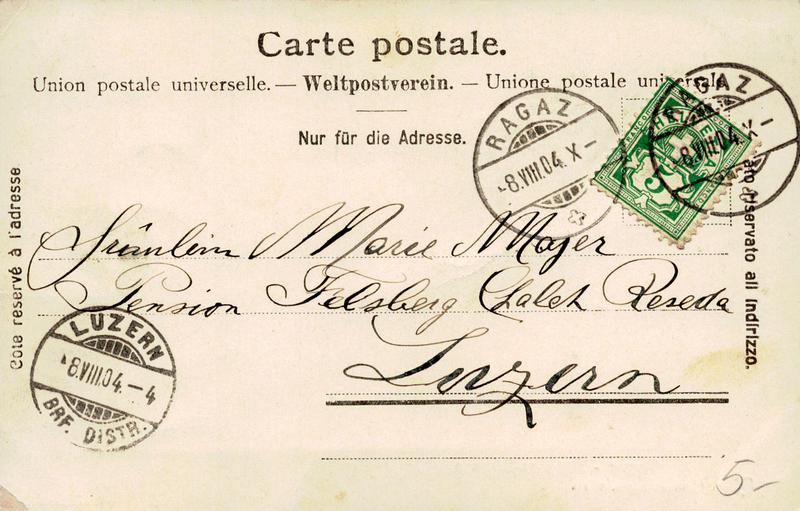 Carte postale.
Union postale universelle. — Weltpostverein. — Unione postale universale
Nur für die Adresse.
RAGAZ
-8.VIII.04.X-
RAGAZ
-8.VIII.04.X-
5
Côté réservé à l'adresse
Lato riservato all indirizzo.
Fräulein Marie Mayer
Pension Felsberg Chalet Reseda
Luzern
LUZERN
-8.VIII.04.-4
BRF. DISTR.
5-